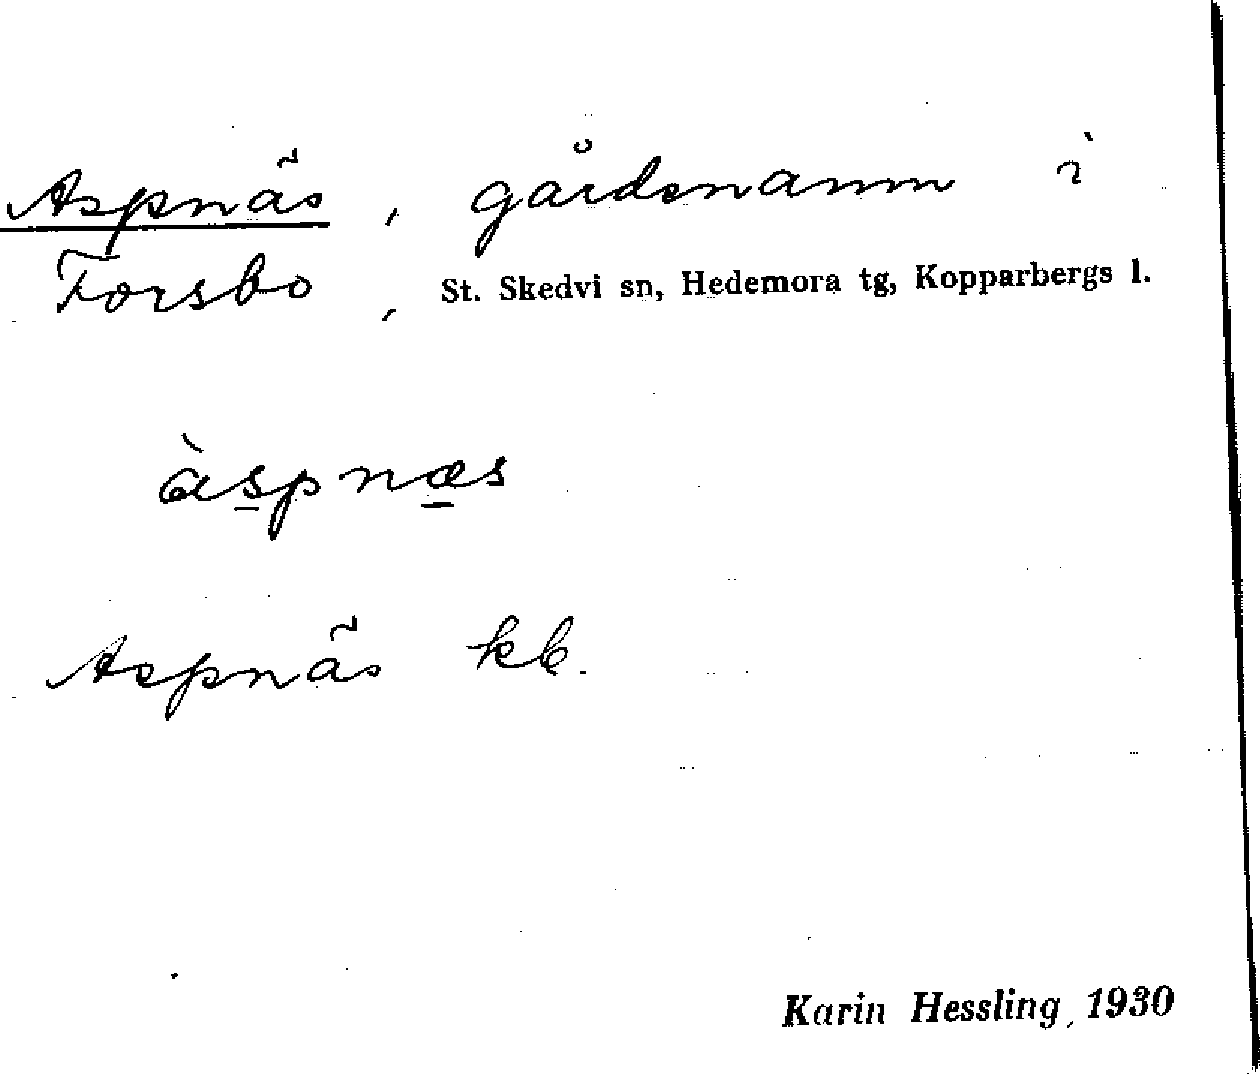 Aspnäs, gårdsnamn i
Forsbo, St. Skedvi sn, Hedemora tg, Kopparbergs l.
àspnæs
Aspnäs kb.
Karin Hessling, 1930